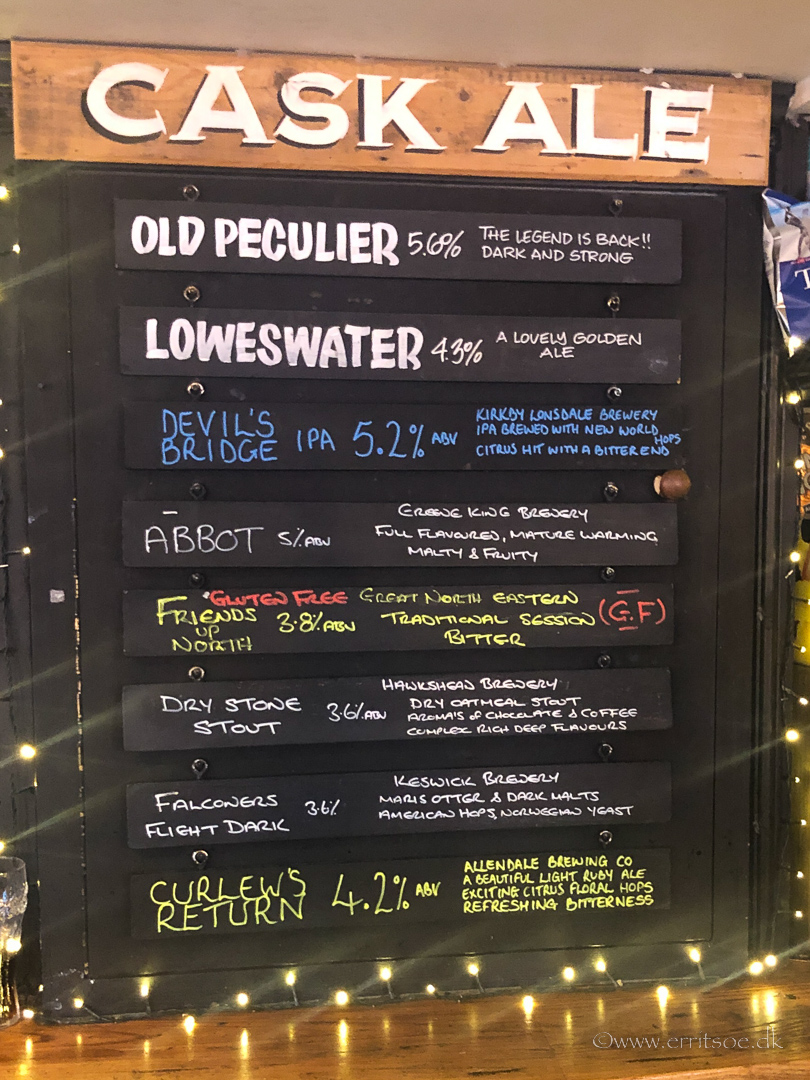 CASK ALE
OLD PECULIER 5.6% THE LEGEND IS BACK!!
DARK AND STRONG
LOWESWATER 4.3% A LOVELY GOLDEN
ALE
DEVIL'S
BRIDGE IPA 5.2% ABV
KIRKBY LONSDALE BREWERY
IPA BREWED WITH NEW WORLD HOPS
CITRUS HIT WITH A BITTER END
ABBOT 5% ABV
GREENE KING BREWERY
FULL FLAVOURED, MATURE WARMING
MALTY & FRUITY
*GLUTEN FREE
FRIENDS
UP
NORTH
3.8% ABV
GREAT NORTH EASTERN
TRADITIONAL SESSION
BITTER
(G.F)
DRY STONE
STOUT
3.6% ABV
HAWKSHEAD BREWERY
DRY OATMEAL STOUT
AROMA'S OF CHOCOLATE & COFFEE
COMPLEX RICH DEEP FLAVOURS
FALCONERS
FLIGHT DARK
3.6%
KESWICK BREWERY
MARIS OTTER & DARK MALTS
AMERICAN HOPS, NORWEGIAN YEAST
CURLEW'S
RETURN
4.2% ABV
ALLENDALE BREWING CO
A BEAUTIFUL LIGHT RUBY ALE
EXCITING CITRUS FLORAL HOPS
REFRESHING BITTERNESS
T
©www.erritsoe.dk